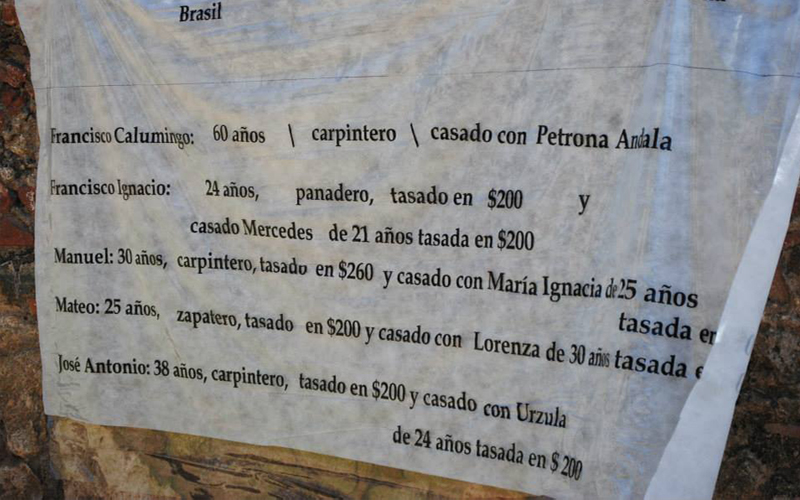 Brasil
Francisco Calumingo: 60 años \ carpintero \ casado con Petrona Andala
Francisco Ignacio: 24 años, panadero, tasado en $200 y
casado Mercedes de 21 años tasada en $200
Manuel: 30 años, carpintero, tasado en $260 y casado con María Ignacia de 25 años
tasada en
Mateo: 25 años, zapatero, tasado en $200 y casado con Lorenza de 30 años tasada
José Antonio: 38 años, carpintero, tasado en $200 y casado con Urzula
de 24 años tasada en $200